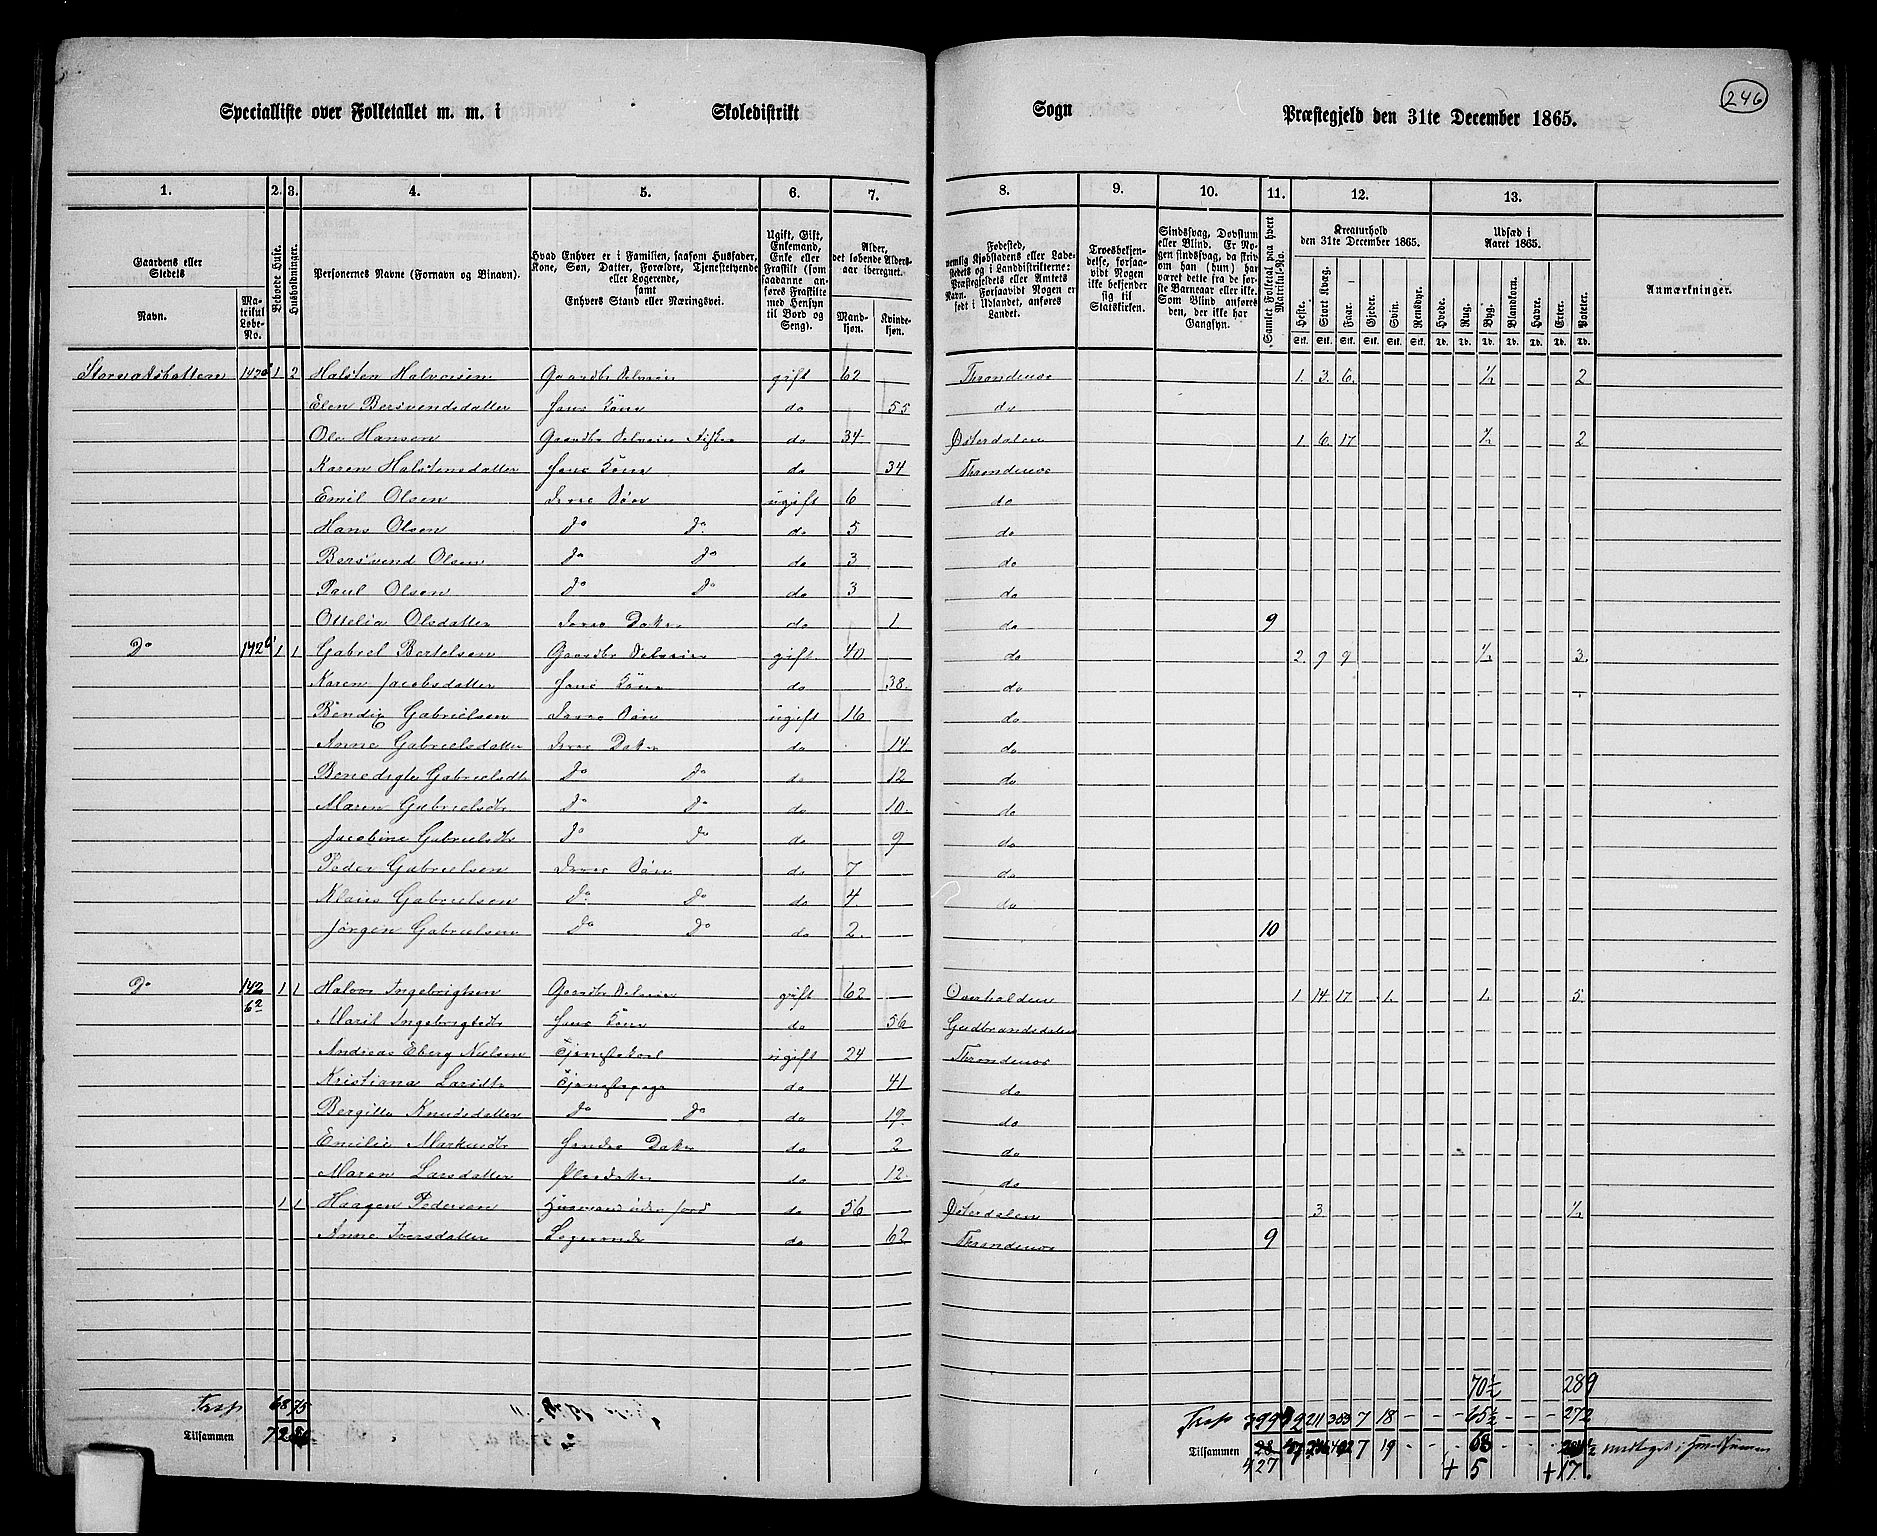 Specialliste over Folketallet m. m. i Skoledistrikt Sogn Præstegjeld den 31te December 1865. 246
1. 2. 3. 4. 5. 6. 7. 8. 9. 10. 11. 12. 13.
Gaardens eller Stedets Navn. Matrikul Løbe-No.
Beboede Huse.
Husholdninger.
Personernes Navne (Fornavn og Binavn).
Hvad Enhver er i Familien, saasom Husfader, Kone, Søn, Datter, Forældre, Tjenestetyende eller Logerende, samt Enhvers Stand eller Næringsvei.
Ugift, Gift, Enkemand, Enke eller Fraskilt (som saadanne anføres Fraskilte med Hensyn til Bord og Seng).
Alder, det løbende Aldersaar iberegnet. Mandkjøn. Kvindekjøn.
Fødested, nemlig Kjøbstadens eller Ladestedets og i Landdistrikterne: Præstegjeldets eller Amtets Navn. Forsaavidt Nogen er født i Udlandet, anføres Landet.
Troesbekjendelse, forsaavidt Nogen ikke bekjender sig til Statskirken.
Sindssvag, Døvstum eller Blind. Er Nogen sindssvag, da skrives om han (hun) har været dette fra de første Barneaar eller ikke. Som Blind anføres den, der ikke har Gangsyn.
Samlet Folketal paa hvert Matrikul-No.
Kreaturhold den 31te December 1865.
Heste. Stort Kvæg. Faar. Gjeder. Svin. Rensdyr.
Udsæd i Aaret 1865.
Hvede. Rug. Byg. Blandkorn. Havre. Erter. Poteter.
Stk. Stk. Stk. Stk. Stk. Stk. Td. Td. Td. Td. Td. Td. Td.
Anmærkninger.
1 2 Halsten Halvorsen Gaardbr Selveier gift 62 Throndenes 1 3 6 ½ 2
Elen Bersvendsdatter Hans Kone do 55 do
Ole Hansen Gaardbr Selveier Fisker do 34 Østerdalen 1 6 17 ½ 2
Karen Halstensdatter Hans Kone do 34 Throndenes
Emil Olsen Deres Søn ugift 6 do
Hans Olsen Do Do do 5 do
Bersvend Olsen Do Do do 3 do
Paul Olsen Do Do do 3 do
Ottelia Olsdatter Deres Datter do 1 do 9
Do 142 1 1 Gabriel Bertelsen Gaardbr Selveier gift 40 do 2 9 9 ½ 3
Karen Jacobsdatter Hans Kone do 38 do
Bendix Gabrielsen Deres Søn ugift 16 do
Anne Gabrielsdatter Deres Datter do 14 do
Benedigte Gabrielsdtr Do Do do 12 do
Maren Gabrielsdtr Do Do do 10 do
Jacobine Gabrielsdtr Do Do do 9 do
Peder Gabrielsen Deres Søn do 7 do
Klaus Gabrielsen Do Do do 4 do
Jørgen Gabrielsen Do Do do 2 10
Do 142 6² 1 1 Halvor Ingebrigtsen Gaardbr Selveier gift 62 Overhalden 1 14 17 1 1 5
Marit Ingebrigtsdtr Hans Kone do 56 Gudbrandsdalen
Andreas Eberg Nielsen Tjenestekarl ugift 24 Throndenes
Kristiana Larsdtr Tjenestepige do 41 do
Bergitte Knudsdatter Do Do do 19 do
Emilie Markusdtr Hendes Datter do 2 do
Maren Larsdatter Pleiedatter do 12 do
1 1 Haagen Pedersen Husmand uden Jord do 56 Østerdalen 3 ½
Anne Iversdatter Logerende do 62 Throndenes 9
70½ 289
Trsp 68 75 Trsp 399 211 383 7 18 - - - 65½ - - - 272
Tilsammen 72 Tilsammen 28 7 19 - - - 68 - - -
427 + 5 + 17.